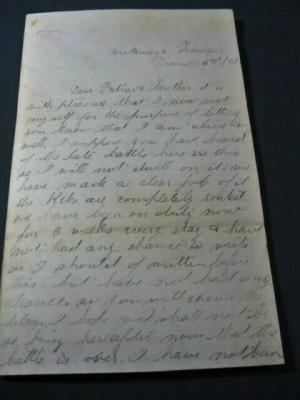 Tennessee
December 2nd / 63
Dear Father & Mother it is
with pleasure that I now seat
myself for the purpose of letting
you know that I am alive &
well, I suppose you have heard
of the late battle here ere this
so I will not dwell on it, we
have made a clear job of it
the Rebs are completely routed
we have been on duty now
for 3 weeks every day & have
not had any chance to write
or I should of written before
this. but have not had any
chance. so you will excuse the
delay, I hope we shall not be
so busy hereafter now that the
battle is over, I have not been